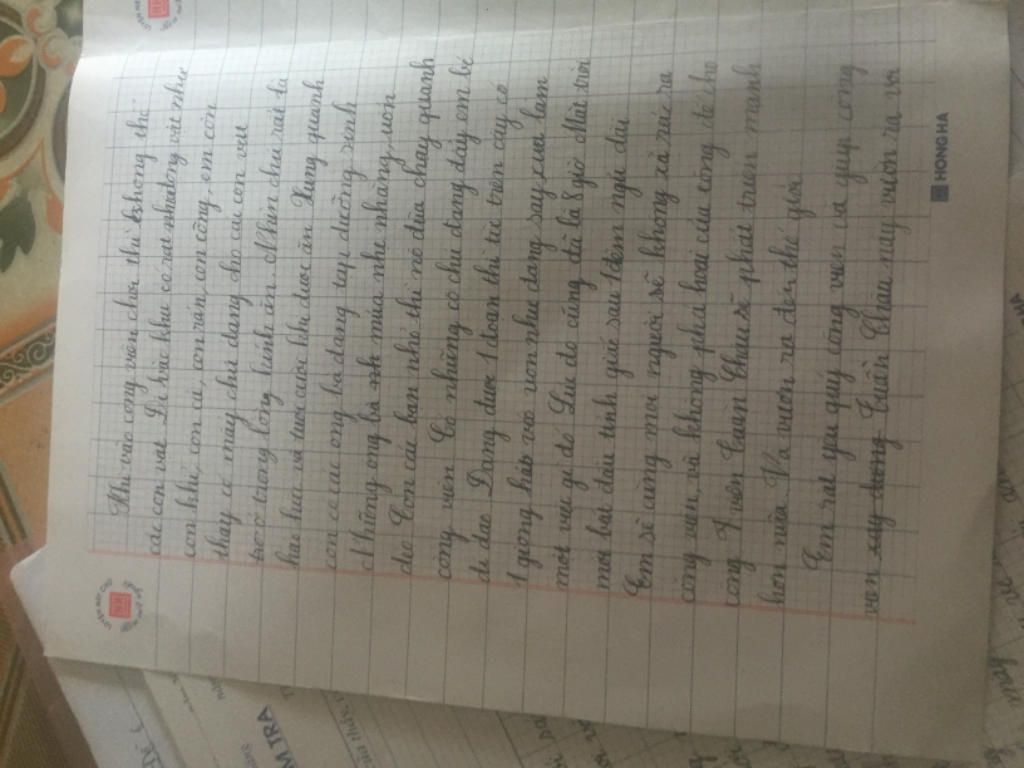 Khi vào công viên chơi thì không thể
các con vật Ở khu có rất nhiều động vật như
con khỉ, con cá, con rắn, con công, em còn
thấy có mấy chú đang cho cái con vẹt
trò trong lồng hình ăn. Nhìn chú rất là
hài hòa và tươi cười khi được ăn Xung quanh
còn có các ông bà đang tập dưỡng sinh
Những ông bà múa nhẹ nhàng, uốn
dẻo Còn các bạn nhỏ thì nô đùa chạy quanh
công viên Có những cô chú đang dẩy em bé
đi dạo Dang được 1 đoạn thì từ trên cây có
1 giọng hát véo von như đang say xưa làm
một việc gì đó Lúc đó cũng đã là 8 giờ Mặt trời
mới bắt đầu tỉnh giấc sau 1 đêm ngủ dài
Em sẽ cùng mọi người sẽ không xả rác ra
công viên, và không phá hoại của công để cho
công viên Tuần Châu sẽ phát triển mạnh
hơn nữa Và vươn ra đời thế giới
Em rất yêu quý công viên và giúp công
viên xây dựng Tuần Châu này vươn ra với
HONG HA
M TRA